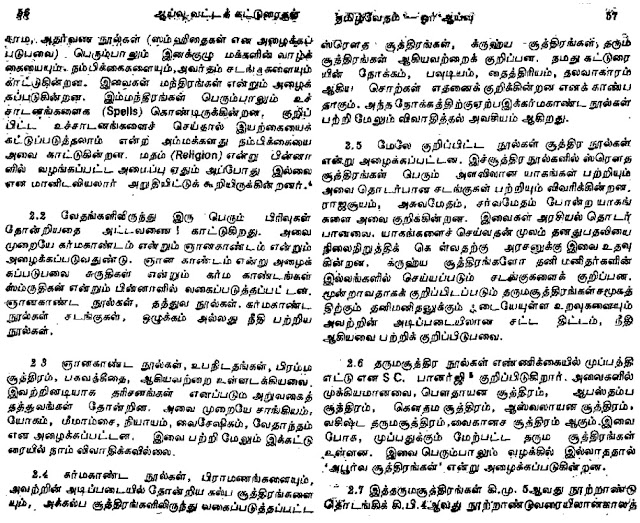 56 ஆய்வுவட்டக் கட்டுரைகள்
சாம, ஆதர்வண நூல்கள் (ஸம்ஹிதைகள் என அழைக்கப்
படுபவை) பெரும்பாலும் இனக்குழு மக்களின் வாழ்க்
கையையும், நம்பிக்கைகளையும், அவர்தம் சடங்குகளையும்
காட்டுகின்றன. இவைகள் மந்திரங்கள் என்றும் அழைக்
கப்படுகின்றன. இம்மந்திரங்கள் பெரும்பாலும் உச்
சாடனங்களைக (Spells) கொண்டிருக்கின்றன, குறிப்
பிட்ட உச்சாடனங்களைச் செய்தால் இயற்கையைக்
கட்டுப்படுத்தலாம் என்ற அம்மக்களது நம்பிக்கையை
அவை காட்டுகின்றன. மதம் (Religion) என்று பின்னா
ளில் வழங்கப்பட்ட அமைப்பு ஏதும் அப்போது இல்லை
என மானிடவியலார் அறுதியிட்டுக் கூறியிருக்கின்றனர்.
2.2 வேதங்களிலிருந்து இரு பெரும் பிரிவுகள்
தோன்றியதை அட்டவணை 1 காட்டுகிறது. அவை
முறையே கர்மகாண்டம் என்றும் ஞானகாண்டம் என்றும்
அழைக்கப்படுவதுண்டு. ஞான காண்டம் என்று அழைக்
கப்படுபவை சுருதிகள் என்றும் கர்ம காண்டங்கள்
ஸ்ம்ருதிகள் என்றும் பின்னாளில் வகைப்படுத்தப்பட்டன.
ஞானகாண்ட நூல்கள், தத்துவ நூல்கள். கர்மகாண்ட
நூல்கள் சடங்குகள், ஒழுக்கம் அல்லது நீதி பற்றிய
நூல்கள்.
2.3 ஞானகாண்ட நூல்கள், உபநிடதங்கள், பிரம்ம
சூத்திரம், பகவத்கீதை, ஆகியவற்றை உள்ளடக்கியவை.
இவற்றினடியாக தரிசனங்கள் எனப்படும் அறுவகைத்
தத்துவங்கள் தோன்றின. அவை முறையே சாங்கியம்,
யோகம், மீமாம்சை, நியாயம், வைசேஷிகம், வேதாந்தம்
என அழைக்கப்பட்டன. இவை பற்றி மேலும் இக்கட்டு
ரையில் நாம் விவாதிக்கவில்லை.
2.4 கர்மகாண்ட நூல்கள், பிராமணங்களையும்,
அவற்றின் அடிப்படையில் தோன்றிய கல்ப சூத்திரங்களை
யும், அக்கல்ப சூத்திரங்களிலிருந்து வகைப்படுத்தப்பட்ட
தமிழ்வேதம்—ஓர் ஆய்வு 57
ஸ்ரௌத சூத்திரங்கள், க்ருஹ்ய சூத்திரங்கள், தரும்
சூத்திரங்கள் ஆகியவற்றைக் குறிப்பன. நமது கட்டுரை
யின் நோக்கம், பவுடியம், தைத்திரியம், தலவாகாரம்
ஆகிய சொற்கள் எதனைக் குறிக்கின்றன எனக் காண்ப
தாகும். அந்த நோக்கத்திற்கு ஏற்ப இக்கர்மகாண்ட நூல்கள்
பற்றி மேலும் விவாதித்தல் அவசியம் ஆகிறது.
2.5 மேலே குறிப்பிட்ட நூல்கள் சூத்திர நூல்கள்
என்று அழைக்கப்பட்டன. இச்சூத்திர நூல்களில் ஸ்ரௌத
சூத்திரங்கள் பெரும் அளவிலான யாகங்கள் பற்றியும்
அவை தொடர்பான சடங்குகள் பற்றியும் விவரிக்கின்றன.
ராஜசூயம், அசுவமேதம், சர்வமேதம் போன்ற யாகங்
களை அவை குறிக்கின்றன. இவைகள் அரசியல் தொடர்
பானவை. யாகங்களைச் செய்வதன் மூலம் தனதுபதவியை
நிலைநிறுத்திக் கொள்வதற்கு அரசனுக்கு இவை உதவு
கின்றன. க்ருஹ்ய சூத்திரங்களோ தனி மனிதர்களின்
இல்லங்களில் செய்யப்படும் சடங்குகளைக் குறிப்பன.
மூன்றாவதாகக் குறிப்பிடப்படும் தருமசூத்திரங்கள் சமூகத்
திற்கும் தனிமனிதனுக்கும் இடையேயுள்ள உறவுகளையும்
அவற்றின் அடிப்படையிலான சட்ட திட்டம், நீதி
ஆகியவை பற்றிக் குறிப்பிடுபவை.
2.6 தருமசூத்திர நூல்கள் எண்ணிக்கையில் முப்பத்தி
எட்டு என S.C. பானர்ஜி குறிப்பிடுகிறார். அவைகளில்
முக்கியமானவை, பௌதாயன சூத்திரம், ஆபஸ்தம்ப
சூத்திரம், கௌதம சூத்திரம், ஆஸ்வலாயன சூத்திரம்,
வசிஷ்ட தருமசூத்திரம், வைகானச சூத்திரம் ஆகும். இவை
போக, முப்பதுக்கும் மேற்பட்ட தரும சூத்திரங்கள்
உள்ளன. இவை பெரும்பாலும் வழக்கில் இல்லாததால்
'அபூர்வ சூத்திரங்கள்' என்று அழைக்கப்படுகின்றன.
2.7 இத்தருமசூத்திரங்கள் கி.மு. 5ஆவது நூற்றாண்டு
தொடங்கிக் கி.பி. 4ஆவது நூற்றாண்டுவரையிலான காலத்